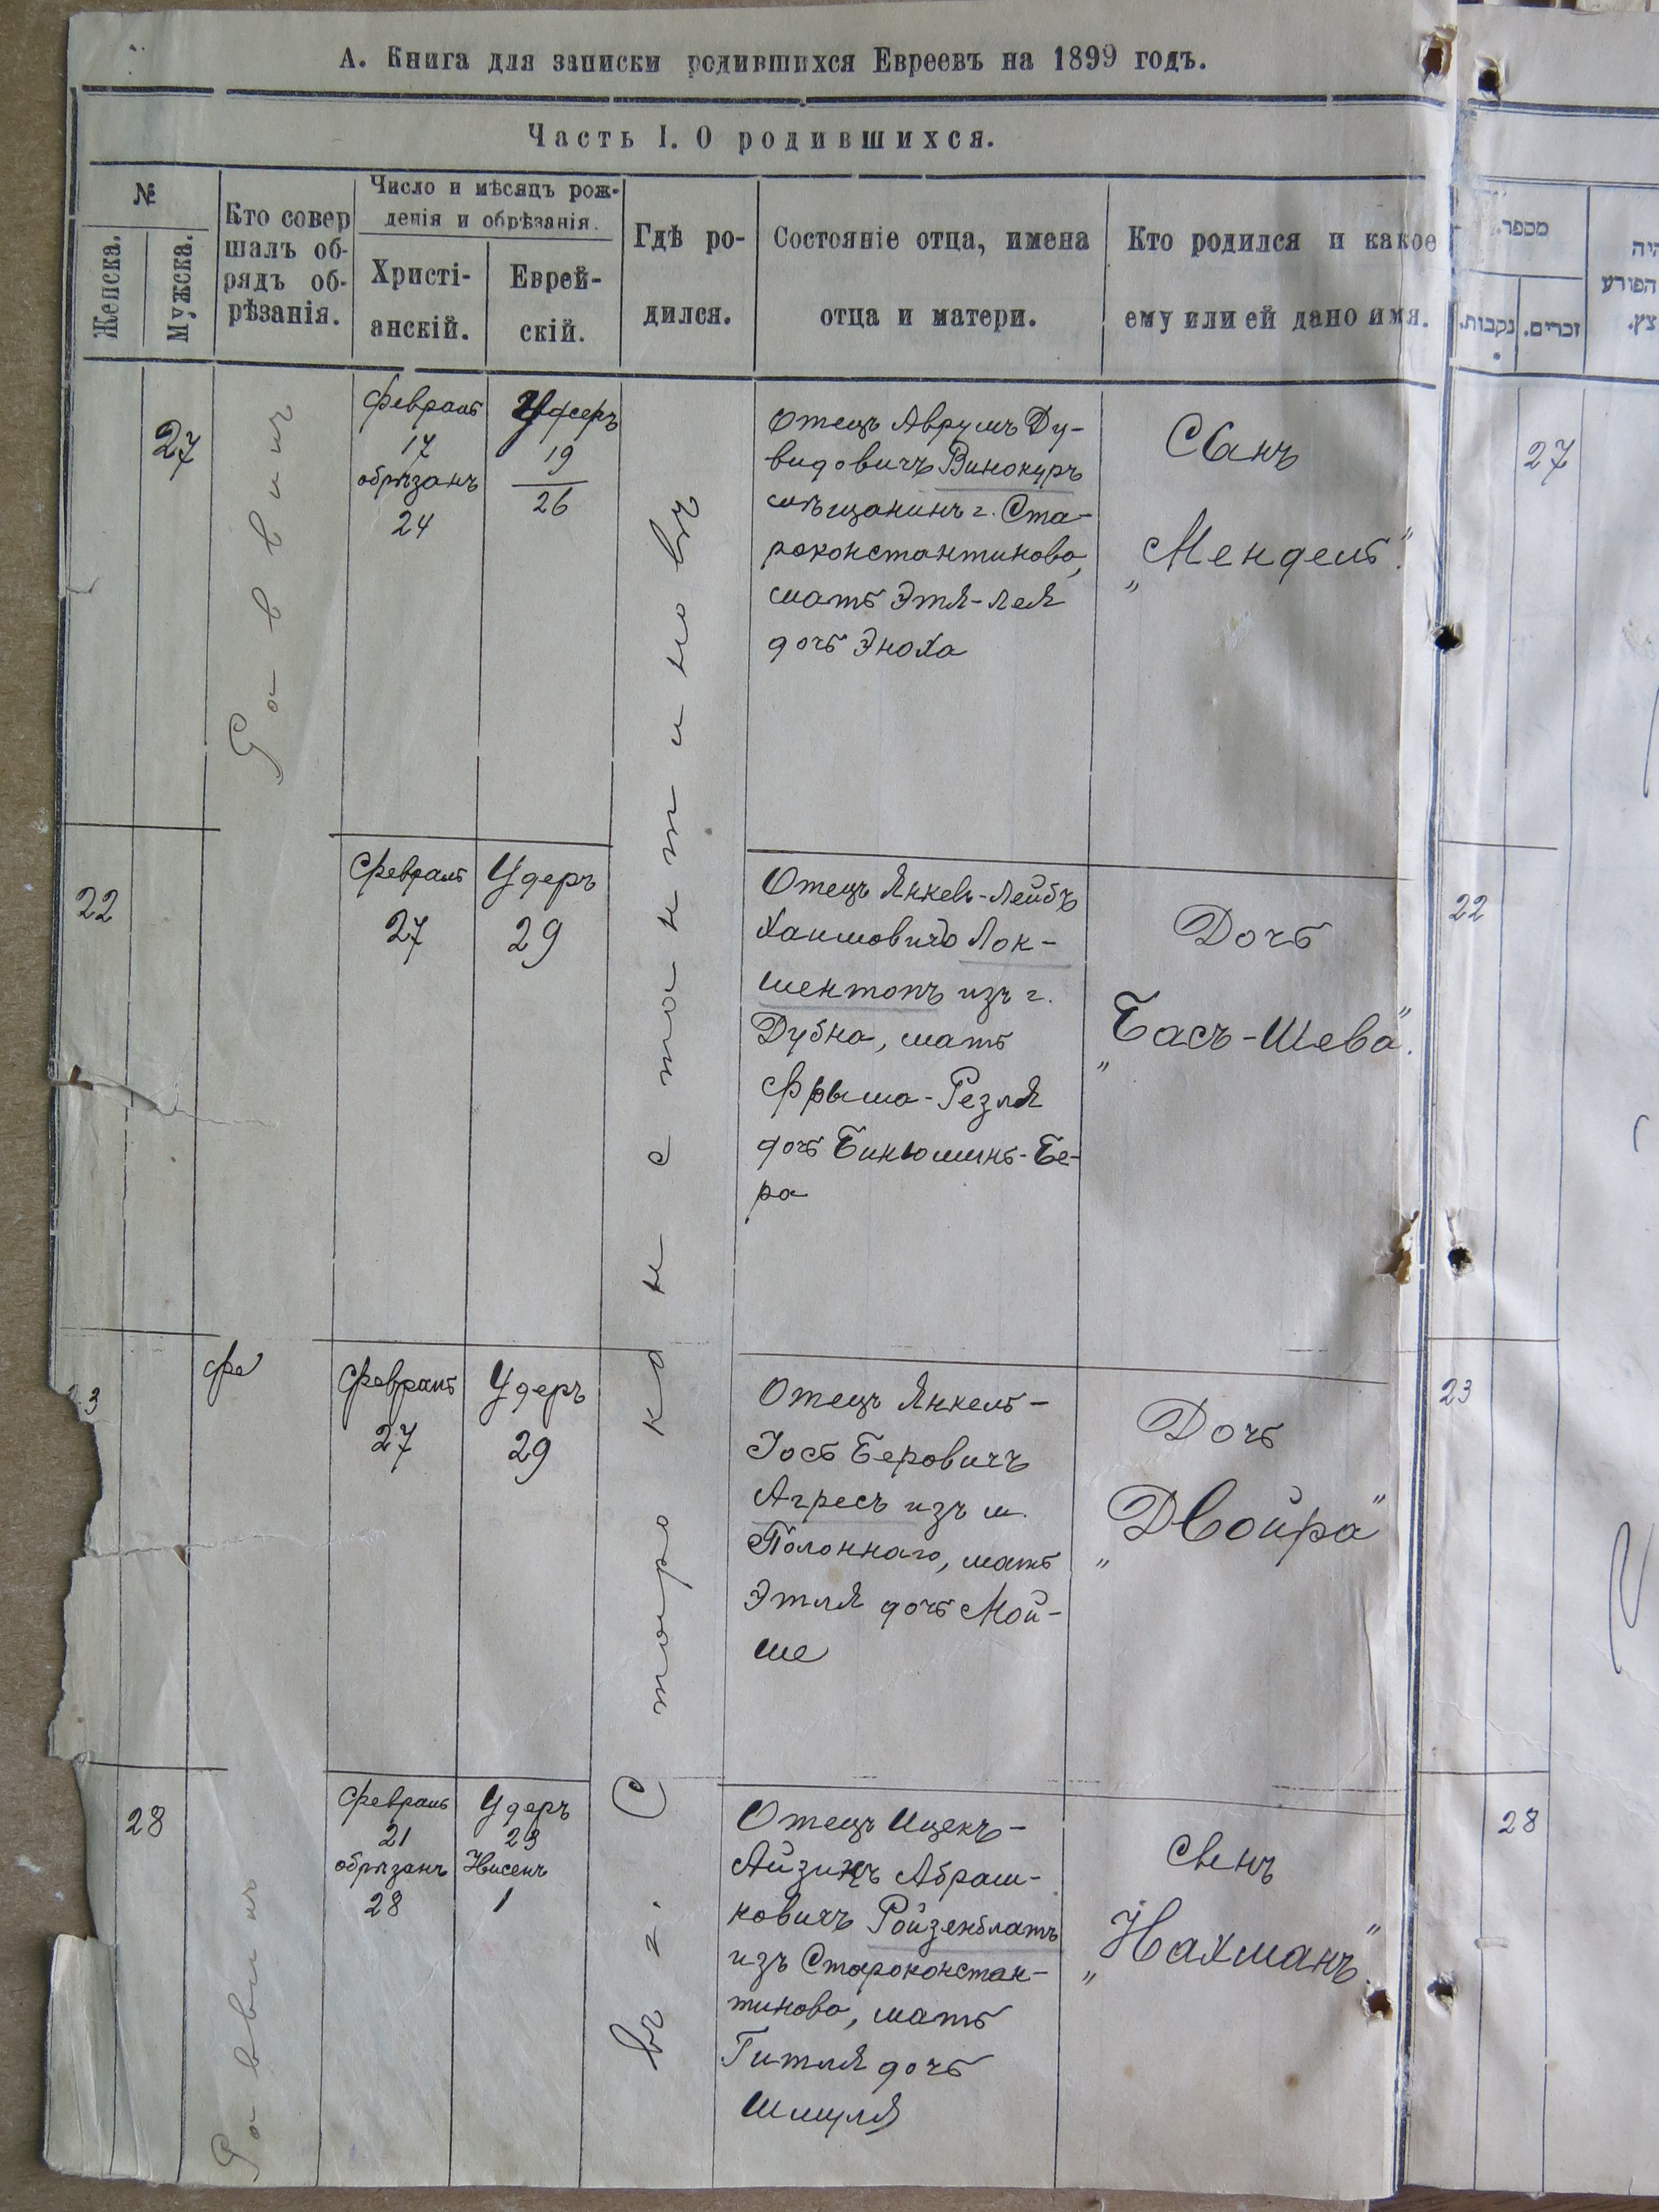 А. Книга для записки родившихся Евреевъ на 1899 годъ.
Часть I. О родившихся.
№
Женска.
Мужска.
Кто совер
шалъ об-
рядъ об-
рѣзанія.
Число и мѣсяцъ рож-
денія и обрѣзанія.
Христі-
анскій.
Еврей-
скій.
Гдѣ ро-
дился.
Состояніе отца, имена
отца и матери.
Кто родился и какое
ему или ей дано имя.
מספר.
נקבות.
זכרים.
היה
הפורע
27
Раввинъ
Февраль
17
обрѣзанъ
24
19
26
Въ г. Староконстантиновъ
Отецъ Аврумъ Ду-
видовичъ Винокуръ
мѣщанинъ г. Ста-
роконстантинова,
мать Этя-Лея
дочь Эноха
Сынъ
„Мендель".
27
22
Февраль
27
Удеръ
29
Отецъ Янкевъ-Лейбъ
Хаимовичъ Лок-
шентопъ изъ г.
Дубна, мать
Фрыма-Резля
дочь Бинюминъ-Бе-
ра
Дочь
„Басъ-Шева".
22
3
Фе
Февраль
27
Удеръ
29
Отецъ Янкель-
Іось Беровичъ
Агресъ изъ м.
Полоннаго, мать
Этля дочь Мой-
ше
Дочь
„Двойра"
23
28
Раввинъ
Февраль
21
обрѣзанъ
28
Удеръ
23
Нисенъ
1
Отецъ Ицекъ-
Айзикъ Абраш-
ковичъ Ройзенблатъ
изъ Староконстан-
тинова, мать
Гитля дочь
Шмуля
Сынъ
„Нахманъ".
28